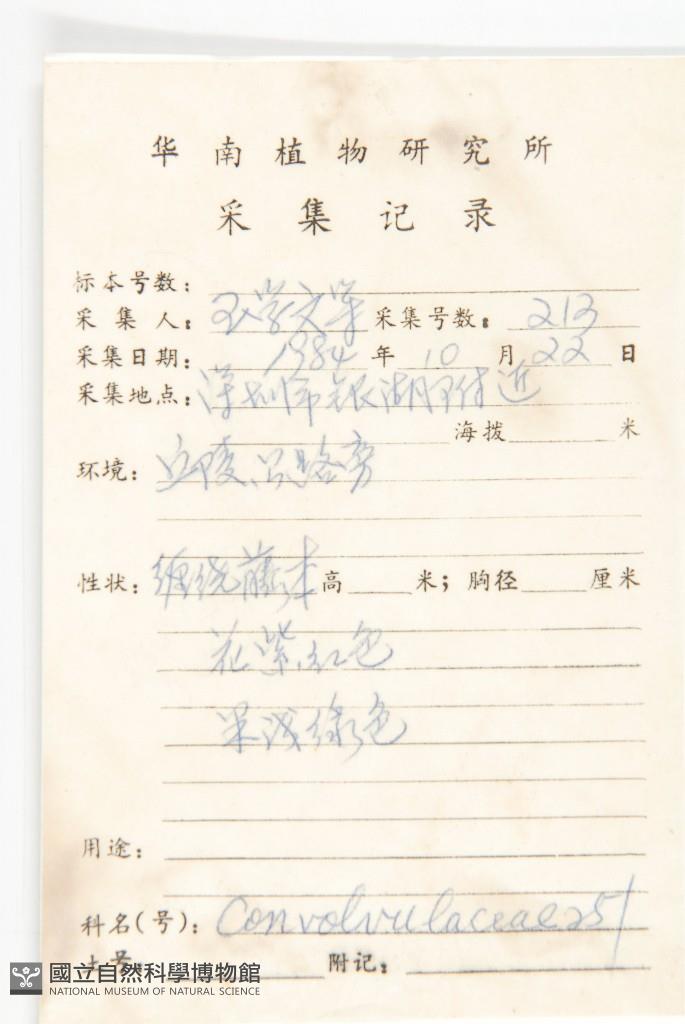 华南植物研究所
采集记录
标本号数：
采集人：王学文等 采集号数：213
采集日期：1984年10月22日
采集地点：深圳市银湖附近
海拨 米
环境：丘陵，路旁
性状：缠绕藤本 高 米；胸径 厘米
花紫红色
果浅绿色
用途：
科名(号)：Convolvulaceae 251
附记：
國立自然科學博物館
NATIONAL MUSEUM OF NATURAL SCIENCE